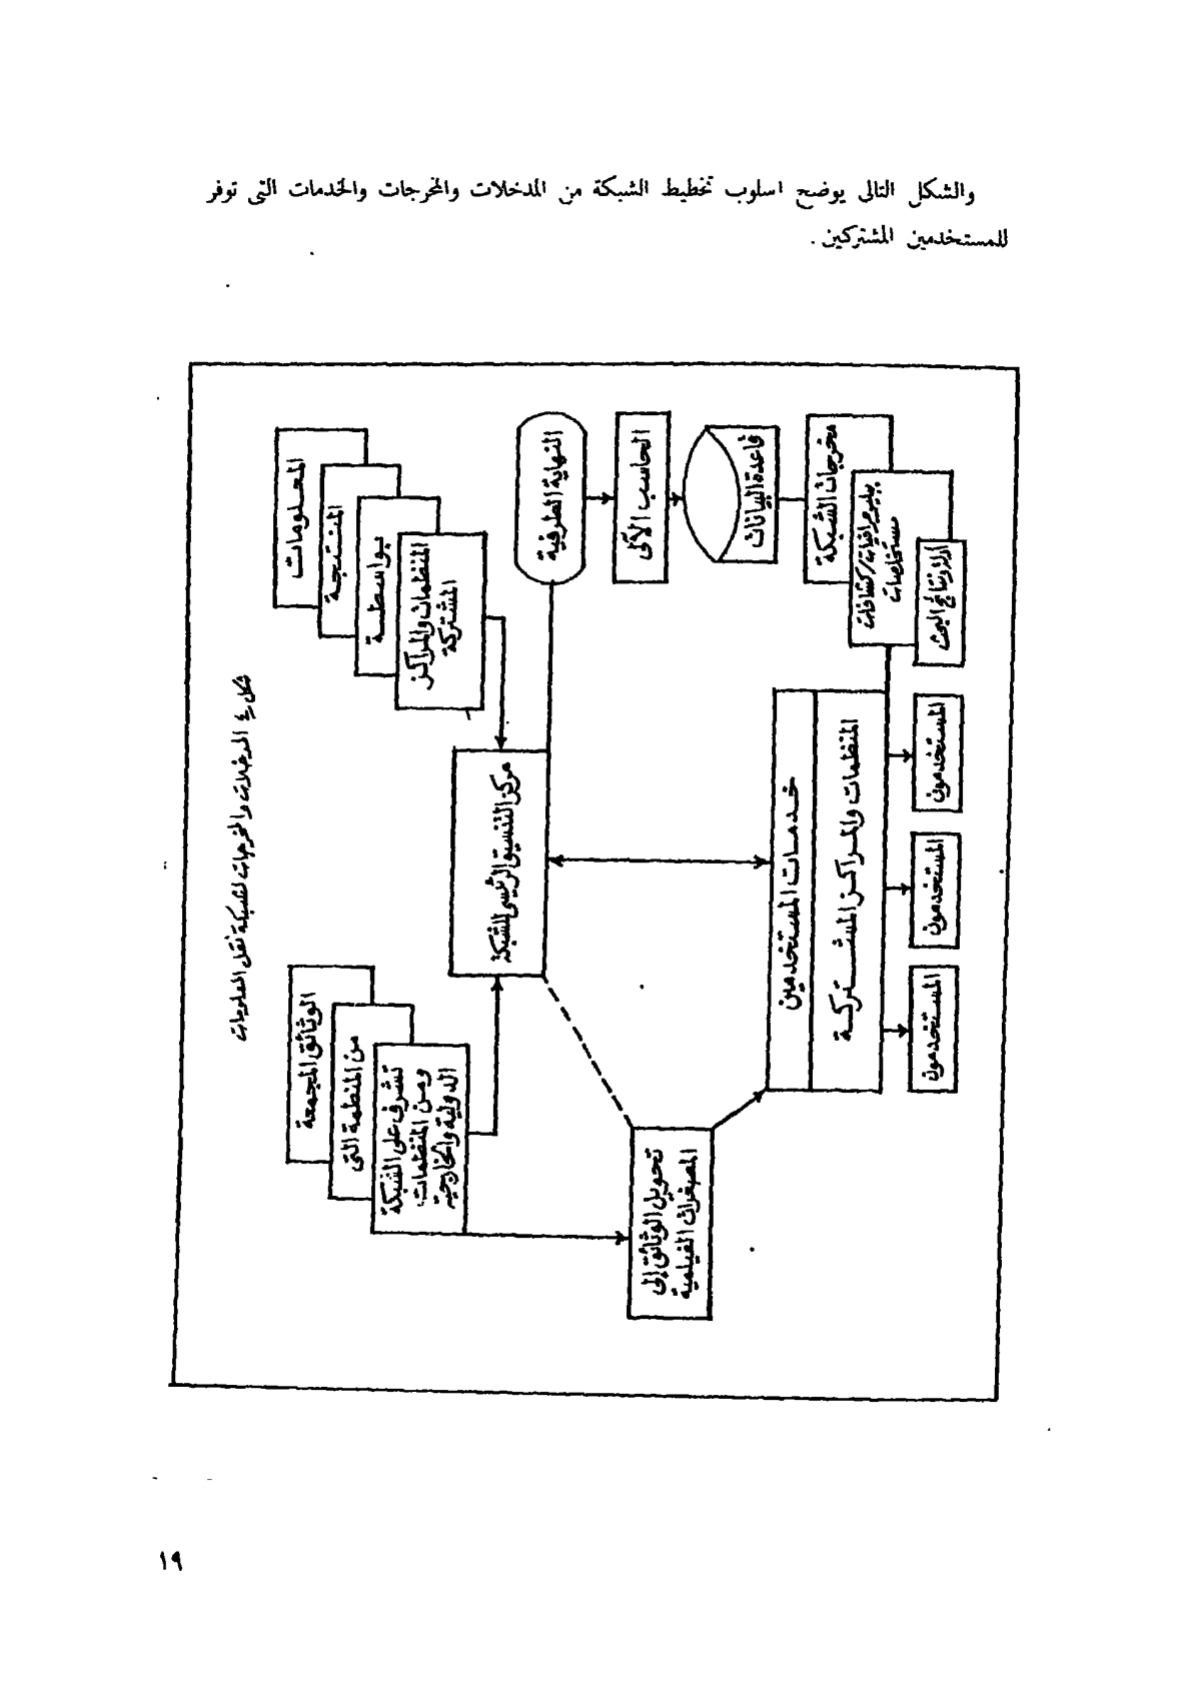 والشكل التالى يوضح اسلوب تخطيط الشبكة من المدخلات والمخرجات والخدمات التى توفر
للمستخدمين المشتركين .
المعلومات
المنتجة
بواسطة
المنظمات والمراكز
المشتركة
النهاية الطرفية
الحاسب الآلى
قاعدة البيانات
مخرجات الشبكة
ببليوجرافيات/كشافات
مستخلصات
نتائج البحث
مركز التنسيق الرئيسى للشبكة
خدمات المستخدمين
المنظمات والمراكز المشتركة
المستخدمون
المستخدمون
المستخدمون
الوثائق المجمعة
من المنظمة التى
تشرف على الشبكة
ومن المنظمات
الدولية والخارجية
تحويل الوثائق إلى
المصغرات الفيلمية
شكل ٤ المدخلات والمخرجات لشبكة نقل المعلومات
١٩